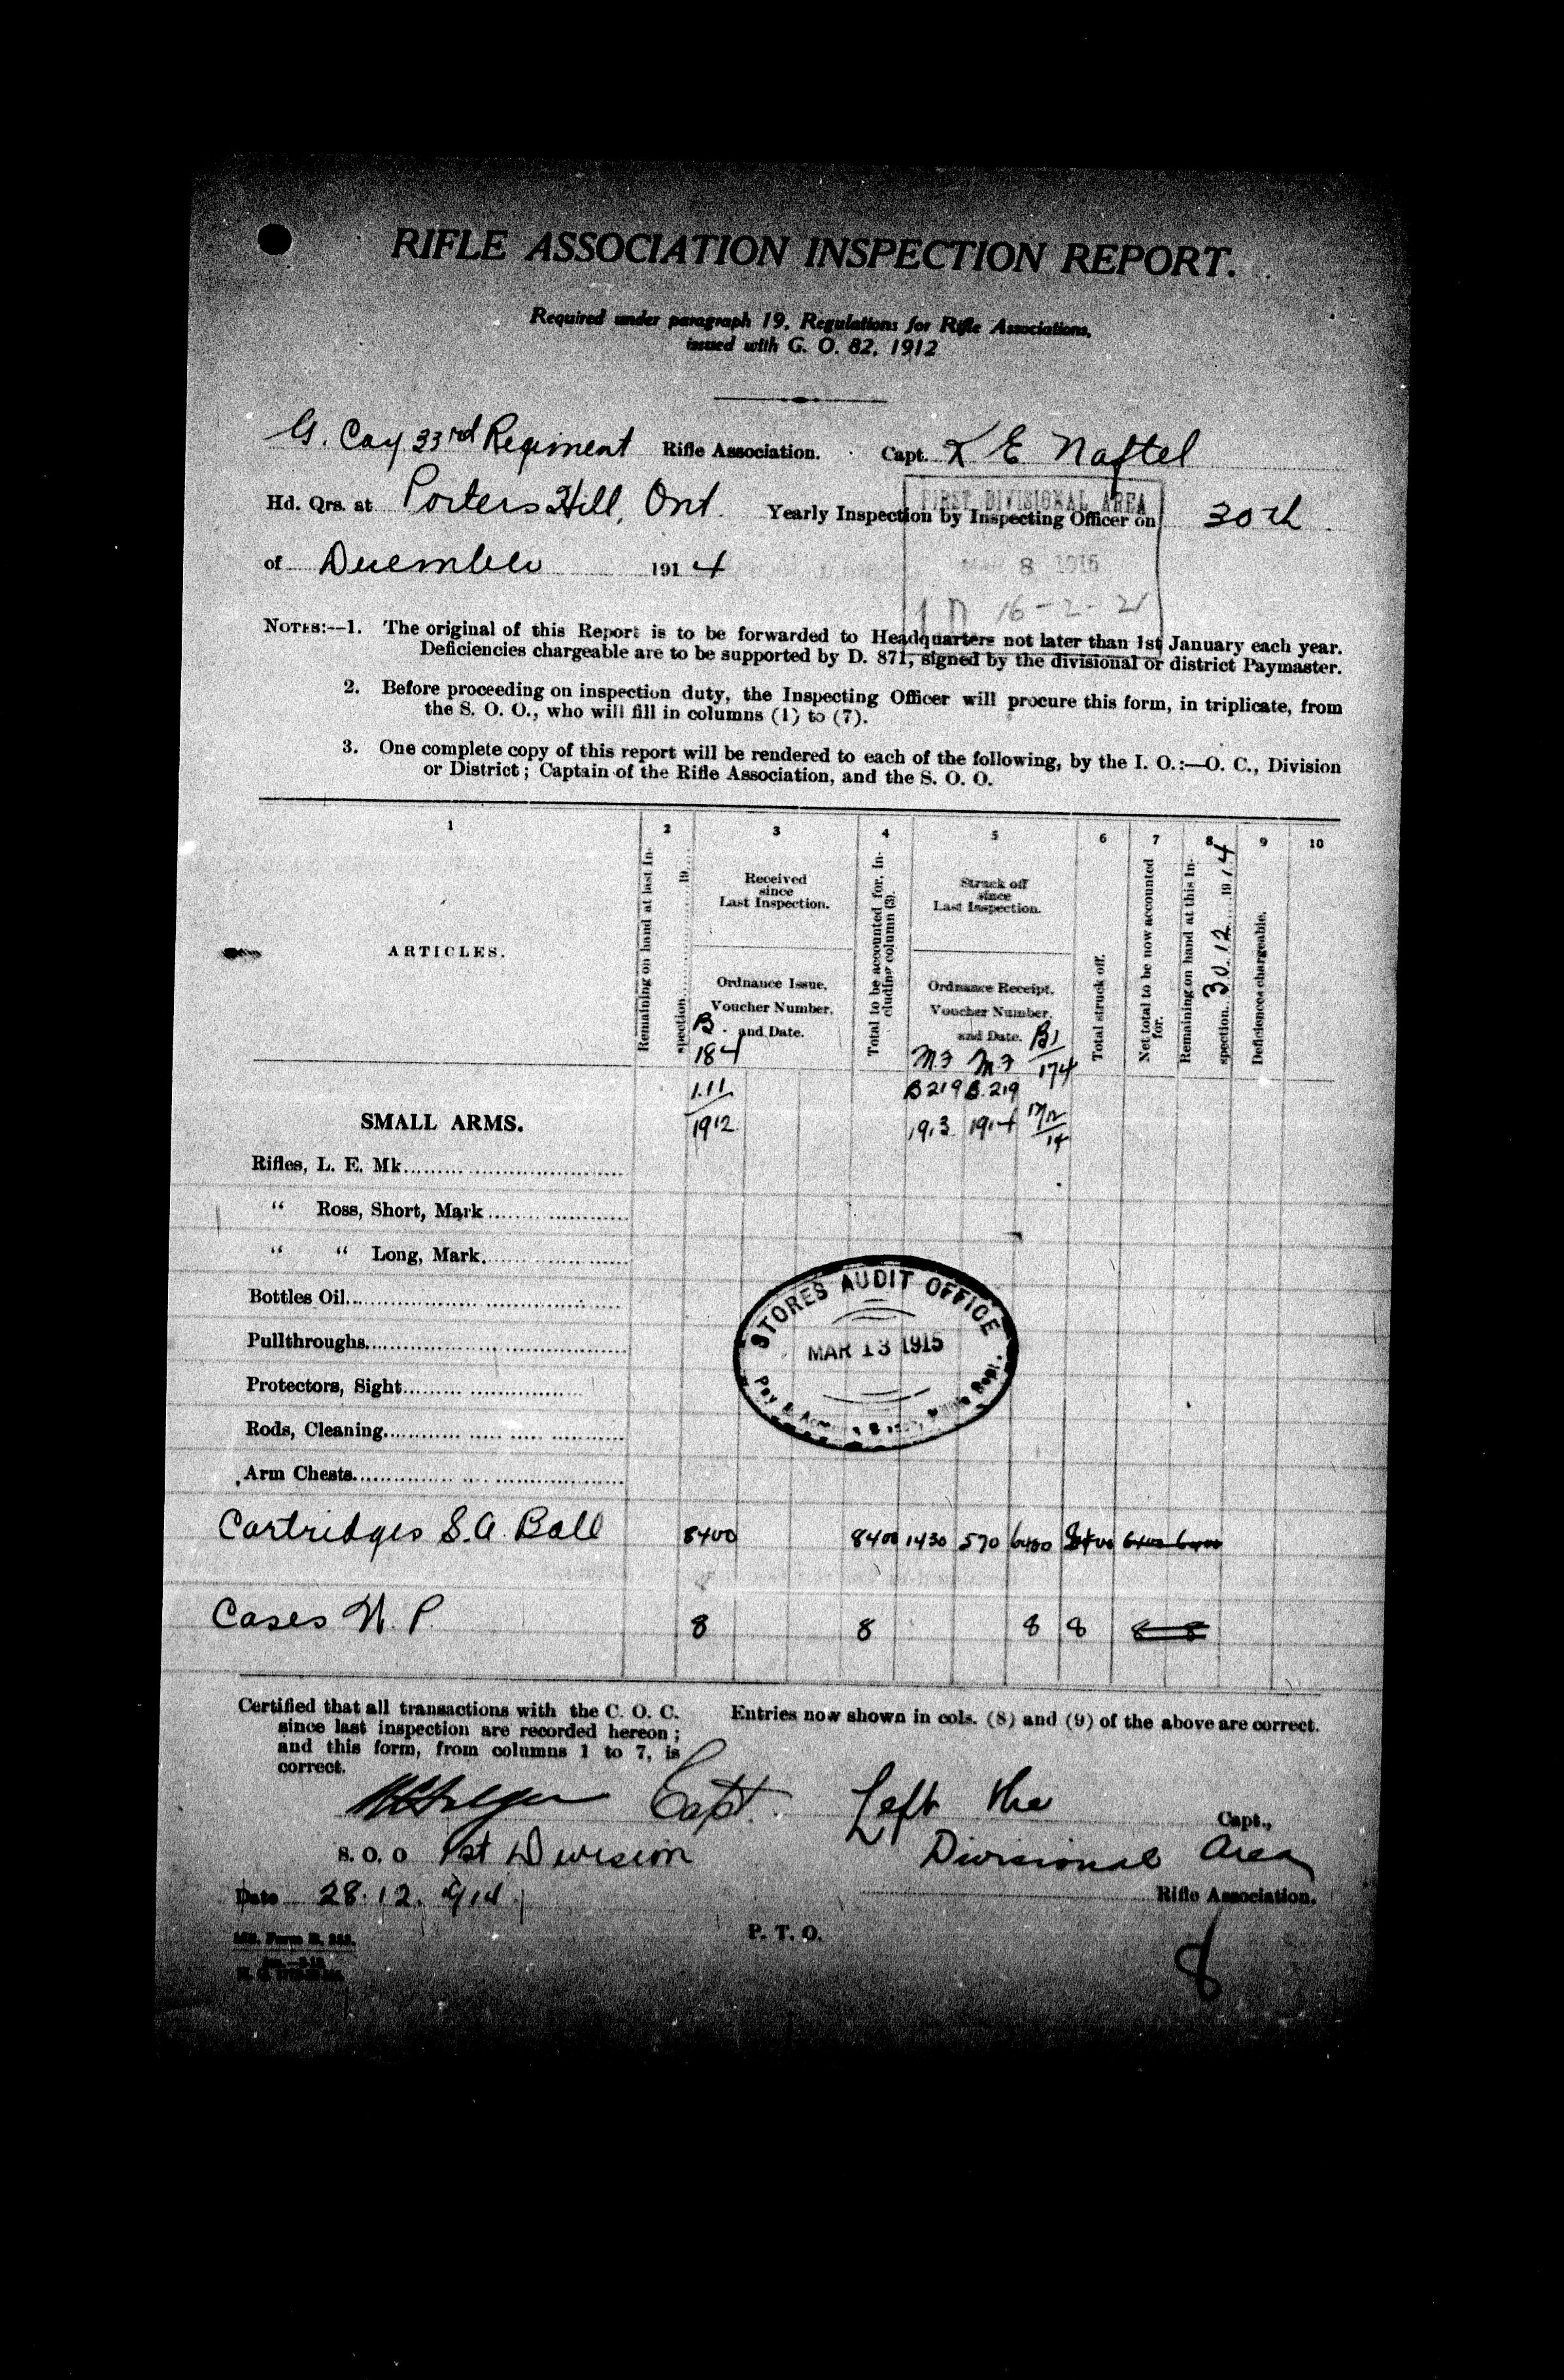 RIFLE ASSOCIATION INSPECTION REPORT.
Required under paragraph 19, Regulations for Rifle Associations,
issued with G. O. 82, 1912
G. Coy 33rd Regiment Rifle Association. Capt. K E Naftel
Hd. Qrs. at Porters Hill, Ont. Yearly Inspection by Inspecting Officer on 30th
FIRST DIVISIONAL AREA
of December 1914
MAR 8 1915
1 D 16-2-21
NOTES:--1. The original of this Report is to be forwarded to Headquarters not later than 1st January each year.
Deficiencies chargeable are to be supported by D. 871, signed by the divisional or district Paymaster.
2. Before proceeding on inspection duty, the Inspecting Officer will procure this form, in triplicate, from
the S. O. O., who will fill in columns (1) to (7).
3. One complete copy of this report will be rendered to each of the following, by the I. O.:—O. C., Division
or District; Captain of the Rifle Association, and the S. O. O.
1 2 3 4 5 6 7 8 9 10
ARTICLES.
Remaining on hand at last In-
spection 19
Received
since
Last Inspection.
Ordnance Issue,
Voucher Number,
and Date.
B.
184
1.11
1912
Total to be accounted for, in-
cluding column (3).
Struck off
since
Last Inspection.
Ordnance Receipt,
Voucher Number,
and Date.
M.F M.F B1
174
B219 B.219
1913 1914 17/12
14
Total struck off.
Net total to be now accounted
for.
Remaining on hand at this In-
spection. 30.12 1914
Deficiences chargeable.
SMALL ARMS.
Rifles, L. E. Mk
“ Ross, Short, Mark
“ “ Long, Mark
Bottles Oil
Pullthroughs
Protectors, Sight
Rods, Cleaning
Arm Chests
STORES AUDIT OFFICE
MAR 13 1915
Pay &
Cartridges S.A. Ball 8400 8400 1430 570 6400 8400 6400 6400
Cases W. P. 8 8 8 8 8 8
Certified that all transactions with the C. O. C.
since last inspection are recorded hereon;
and this form, from columns 1 to 7, is
correct.
Entries now shown in cols. (8) and (9) of the above are correct.
Capt. Left the Capt.,
S. O. O 1st Division Divisional Area
Date 28.12.1914 Rifle Association.
P. T. O.
8